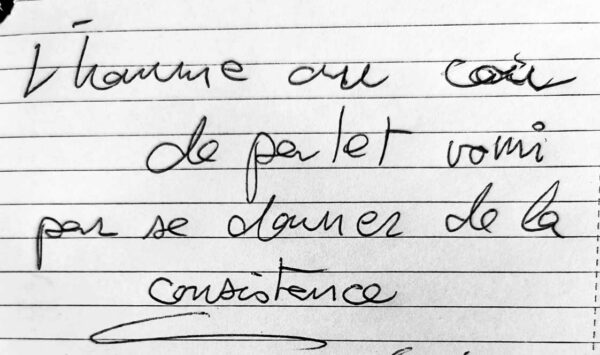 L'homme au cœur
de poulet vomi
pour se donner de la
consistence